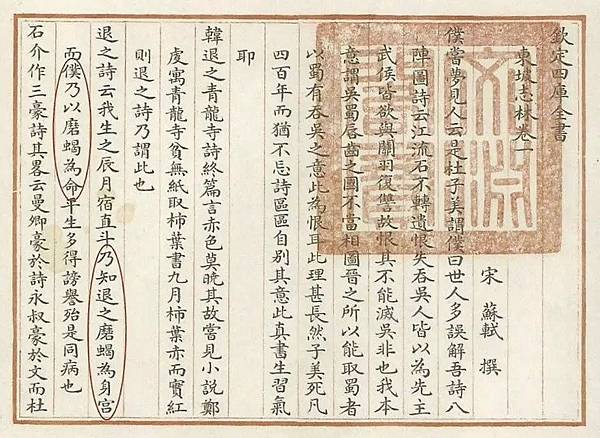 欽定四庫全書
東坡志林卷一
宋 蘇軾 撰
僕嘗夢見人云是杜子美謂僕曰世人多誤解吾詩八
陣圖詩云江流石不轉遺恨失吞吳人皆以為先主
武侯皆欲與關羽復讐故恨其不能滅吳非也我本
意謂吳蜀唇齒之國不當相圖晉之所以能取蜀者
以蜀有吞吳之意此為恨耳此理甚長然子美死凡
四百年而猶不忘詩區區自别其意此真書生習氣
耶
韓退之青龍寺詩終篇言赤色莫曉其故嘗見小說鄭
虔寓青龍寺貧無紙取柿葉書九月柿葉赤而實紅
則退之詩乃謂此也
退之詩云我生之辰月宿直斗乃知退之磨蝎為身宫
而僕乃以磨蝎為命平生多得謗譽殆是同病也
石介作三豪詩其畧云曼卿豪於詩永叔豪於文而杜